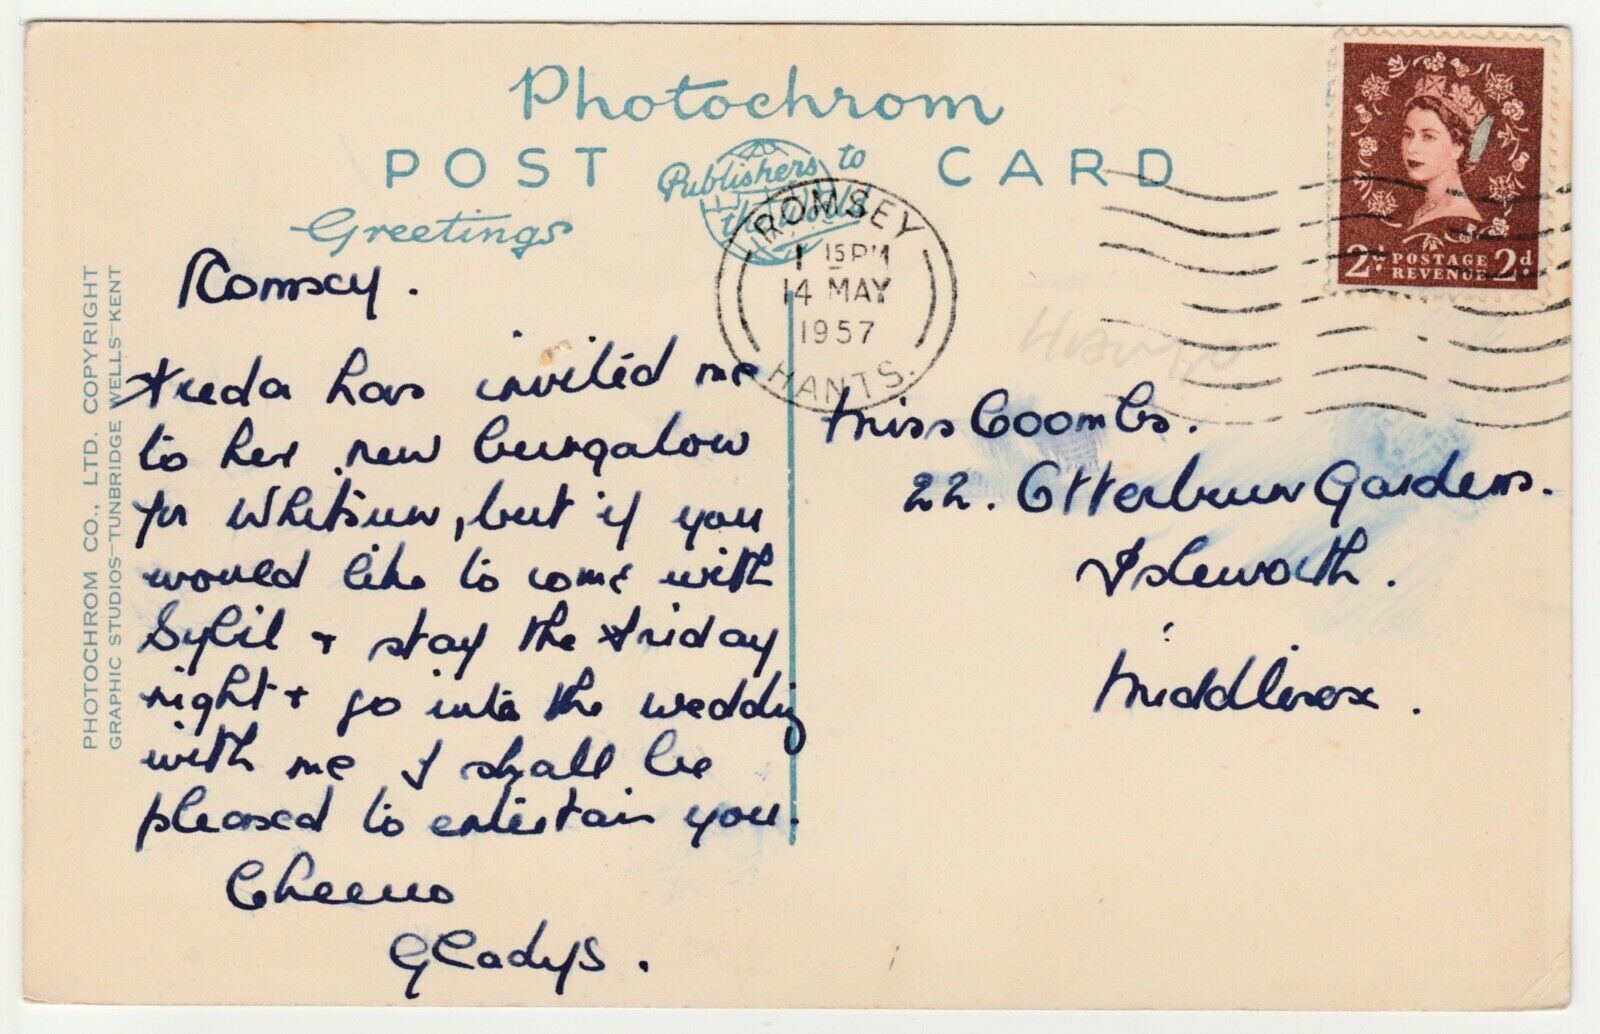 Photochrom
POST CARD
Publishers to
the World
Greetings
ROMSEY
1 15 PM
14 MAY
1957
HANTS.
2d POSTAGE 2d
REVENUE
PHOTOCHROM CO., LTD. COPYRIGHT
GRAPHIC STUDIOS—TUNBRIDGE WELLS—KENT
Romsey.
Freda has invited me
to her new bungalow
for Whitsun, but if you
would like to come with
Sybil + stay the Friday
night + go into the wedding
with me I shall be
pleased to entertain you.
Cheerio
Gladys.
Miss Coombs.
22. Otterburn Gardens.
Isleworth.
Middlesex.